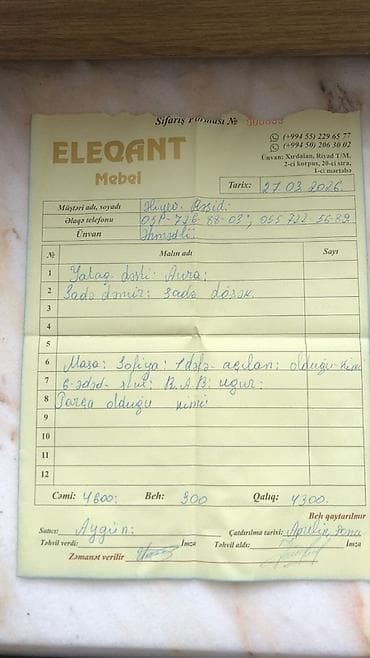 Sifariş Forması №
ELEQANT
Mebel
(+994 55) 229 65 77
(+994 50) 206 30 02
Ünvan: Xırdalan, Riyad T/M,
2-ci korpus, 20-ci sıra,
1-ci mərtəbə
Tarix: 27.03.2026.
Müştəri adı, soyadı
Əlaqə telefonu 055 722-56-89
Ünvan Əhmədli
№ Malın adı Sayı
1 Yataq dəsti: Aura;
2 Sadə dəmir; sadə döşək.
3
4
5
6 Masa: Sofiya: 1 dəfə açılan; olduğu kimi
7 6-ədəd-stul: R.A.B; uğur;
8 Parça olduğu kimi
9
10
11
12
Cəmi: 4600: Beh: 300 Qalıq: 4300.
Beh qaytarılmır
Satıcı: Aygün: Çatdırılma tarixi: Aprelin sonu
Təhvil verdi: İmza Təhvil aldı: İmza
Zəmanət verilir